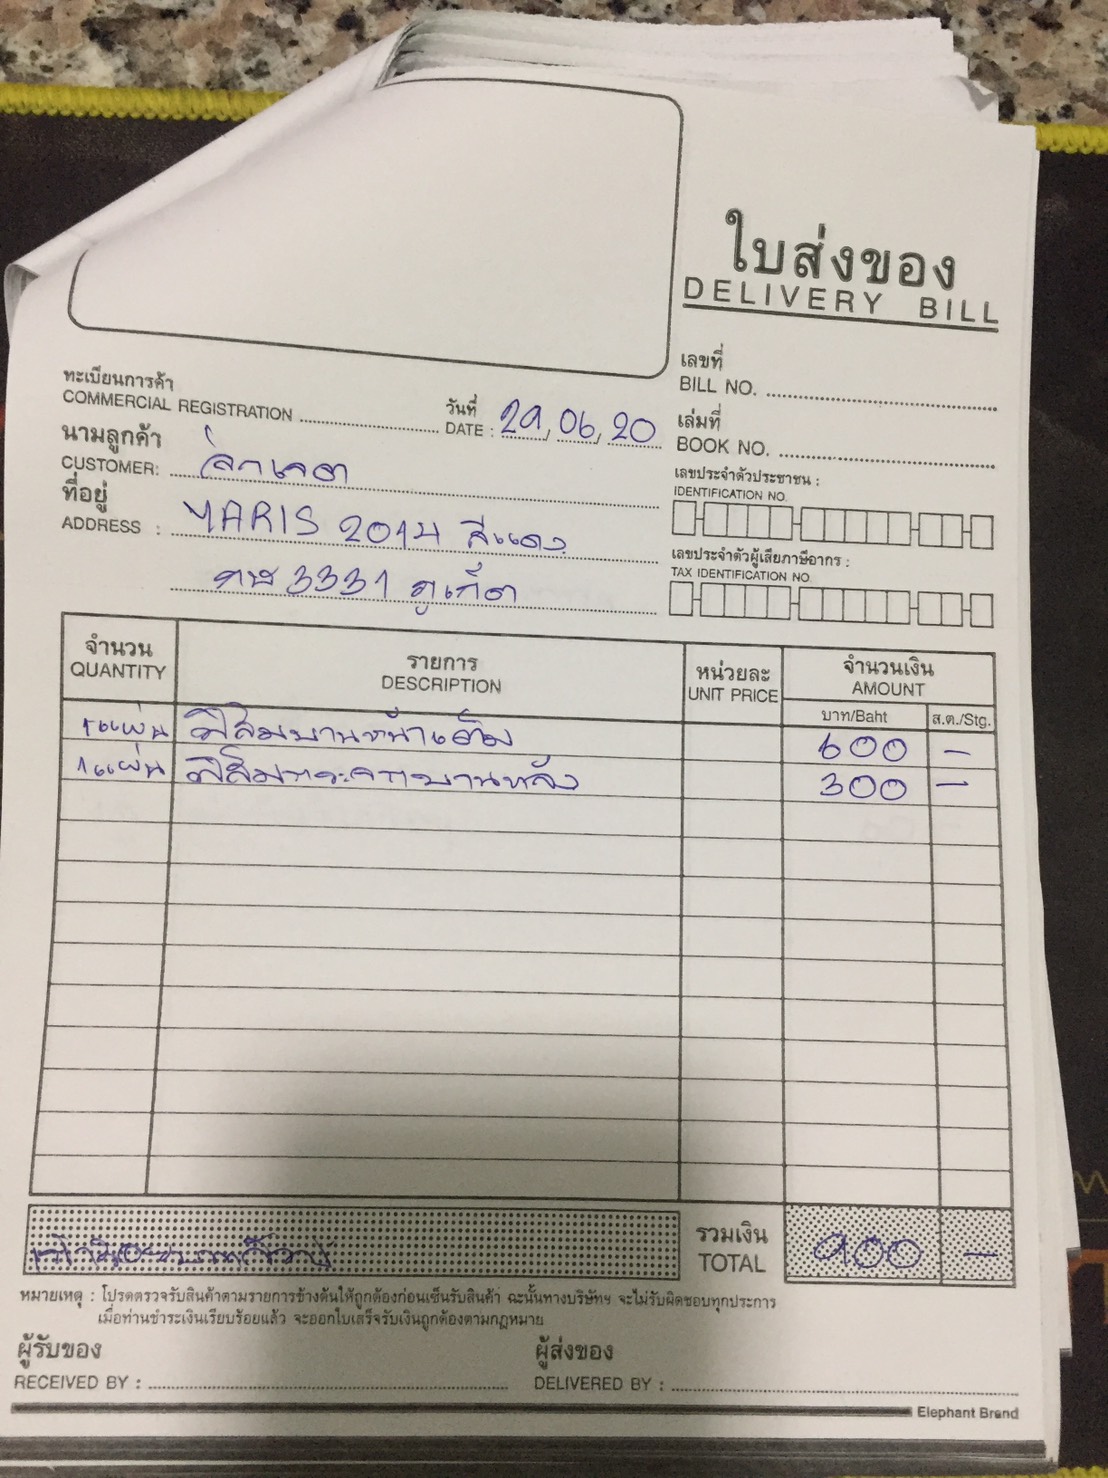 ใบส่งของ
DELIVERY BILL
เลขที่
BILL NO.
ทะเบียนการค้า
COMMERCIAL REGISTRATION
วันที่
DATE : 29, 06, 20
เล่มที่
BOOK NO.
นามลูกค้า
CUSTOMER:
เลขประจำตัวประชาชน :
IDENTIFICATION NO.
ที่อยู่
ADDRESS : YARIS 2014 สีแดง
เลขประจำตัวผู้เสียภาษีอากร :
TAX IDENTIFICATION NO.
3331 ภูเก็ต
จำนวน รายการ หน่วยละ จำนวนเงิน
QUANTITY DESCRIPTION UNIT PRICE AMOUNT
บาท/Baht ส.ต./Stg.
1แผ่น ฟิล์มบานหน้าเต็ม 600 -
1แผ่น บานหลัง 300 -
รวมเงิน
TOTAL 900 -
หมายเหตุ : โปรดตรวจรับสินค้าตามรายการข้างต้นให้ถูกต้องก่อนเซ็นรับสินค้า ฉะนั้นทางบริษัทฯ จะไม่รับผิดชอบทุกประการ
เมื่อท่านชำระเงินเรียบร้อยแล้ว จะออกใบเสร็จรับเงินถูกต้องตามกฎหมาย
ผู้รับของ ผู้ส่งของ
RECEIVED BY : DELIVERED BY :
Elephant Brand